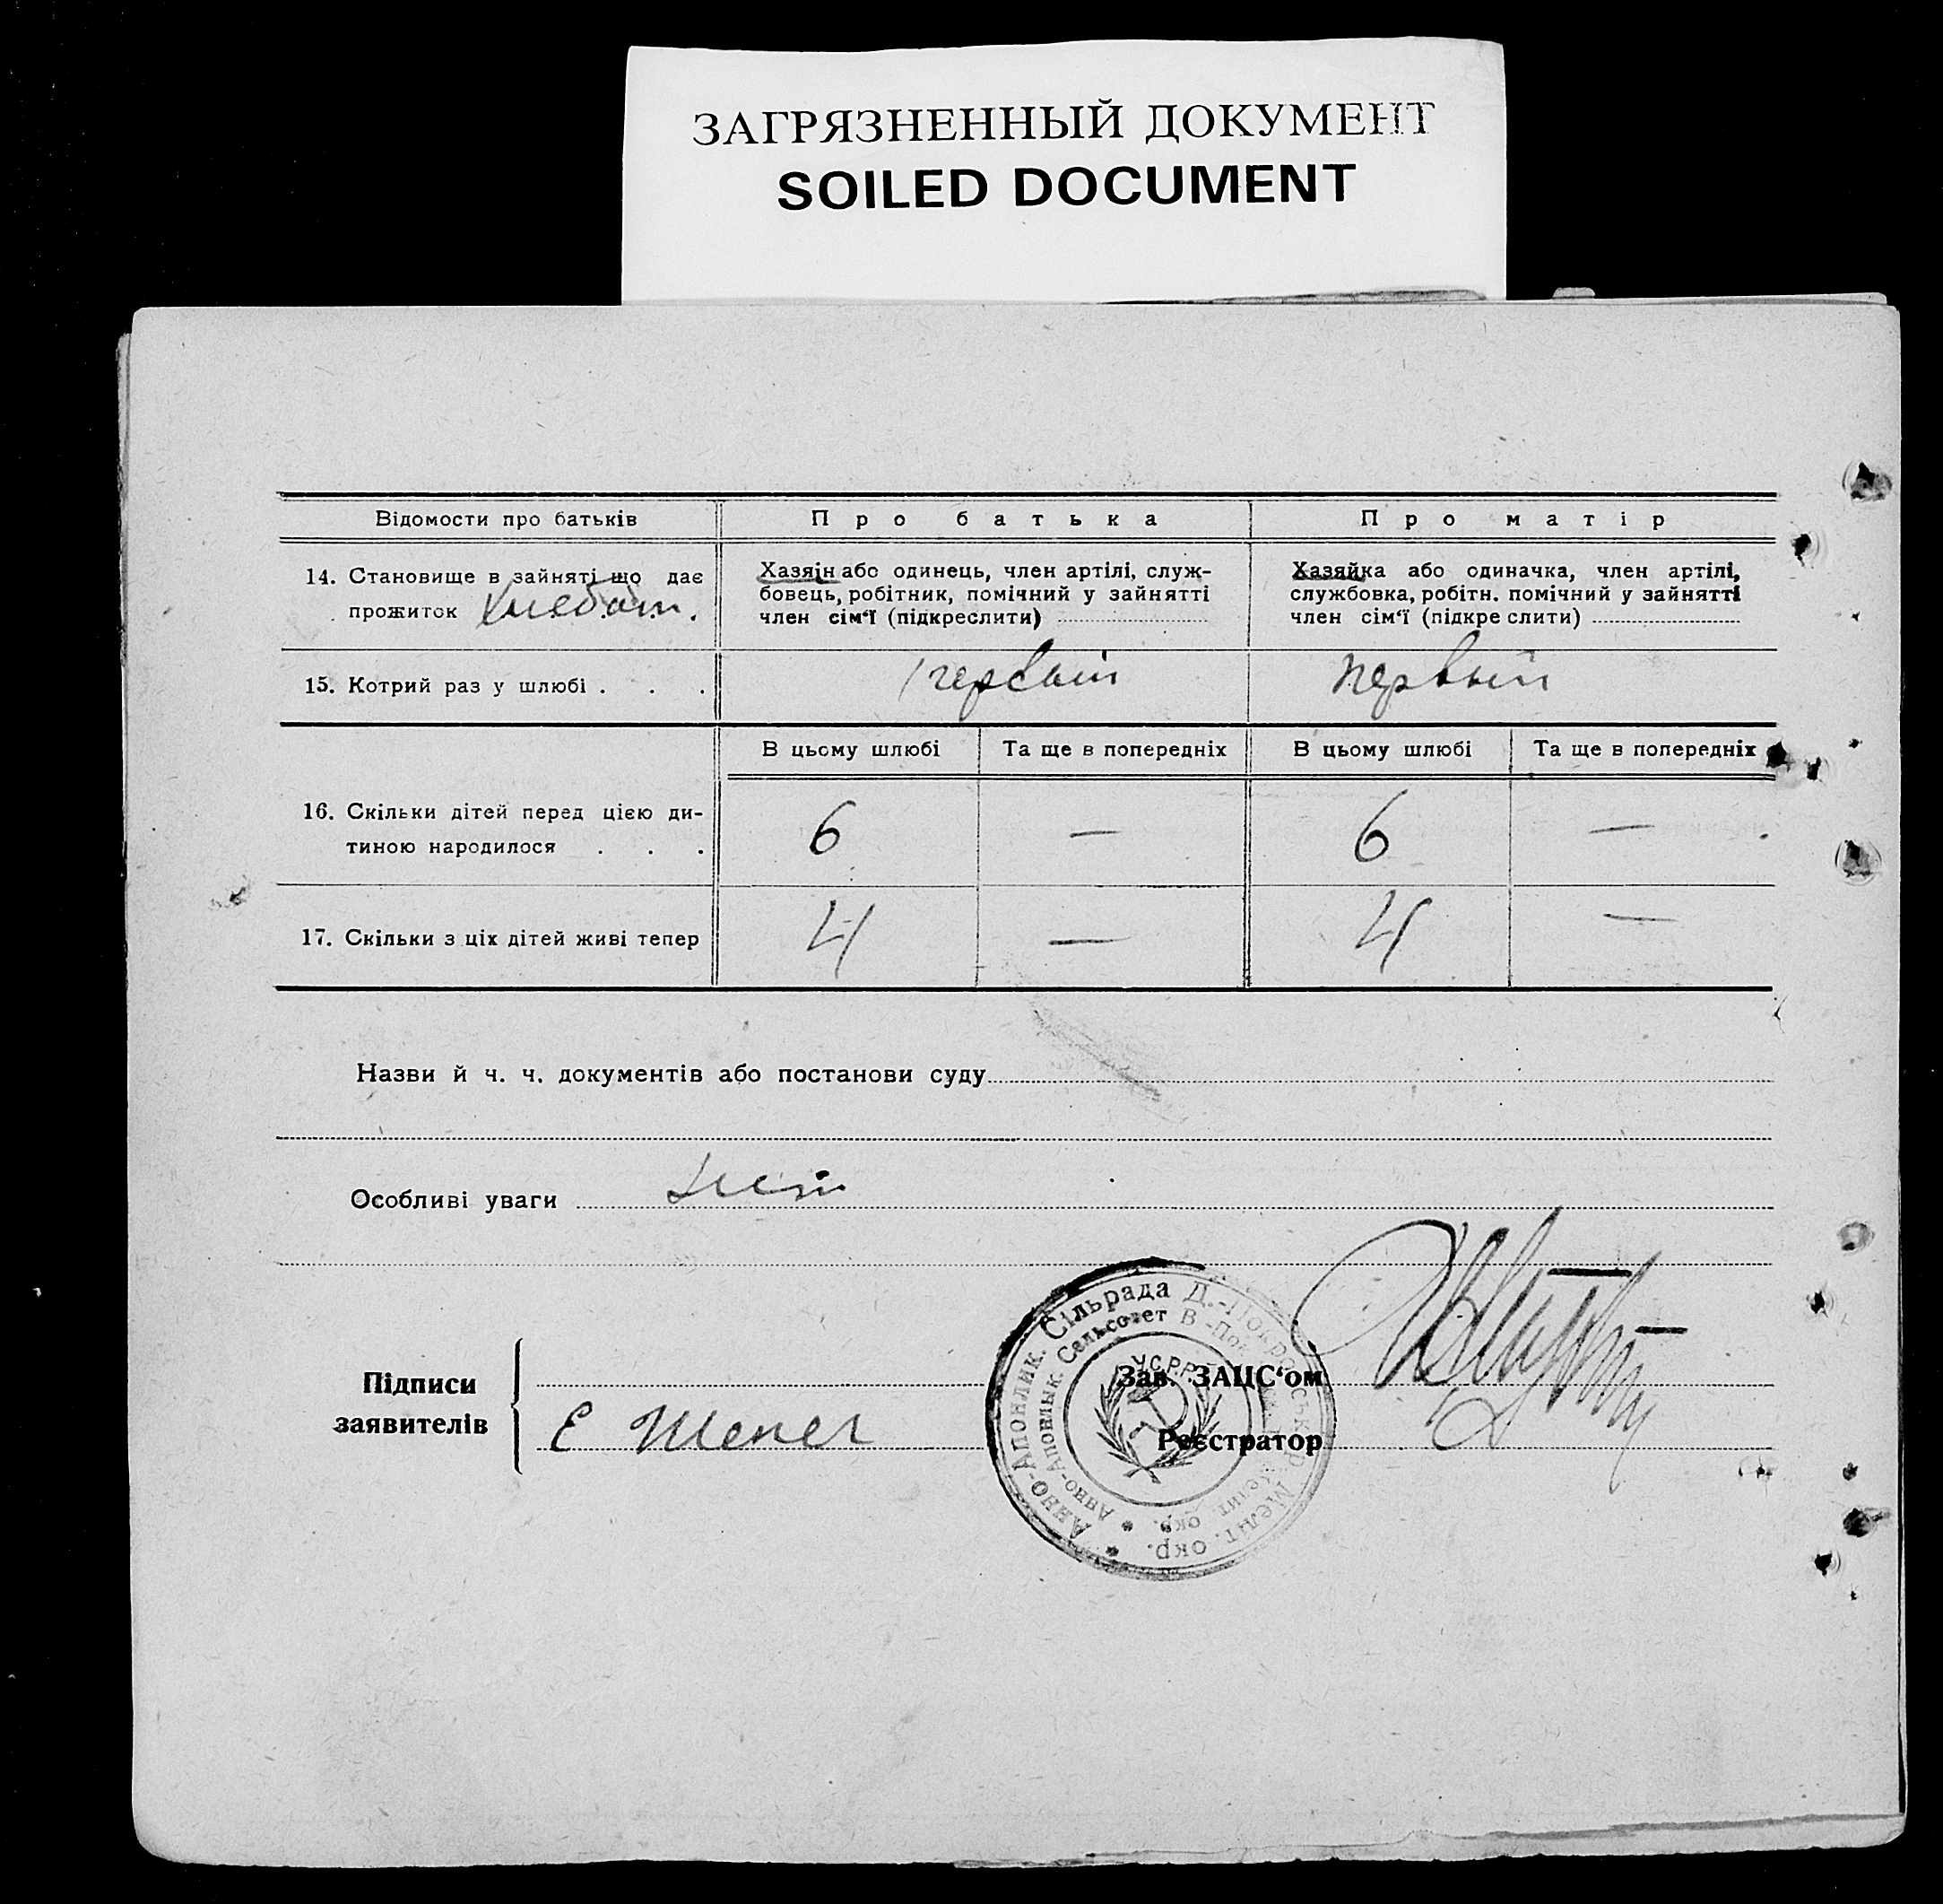 ЗАГРЯЗНЕННЫЙ ДОКУМЕНТ
SOILED DOCUMENT
Відомости про батьків
Про батька
Про матір
14. Становище в зайняті що дає
прожиток
Хазяін або одинець, член артілі, служ-
бовець, робітник, помічний у зайнятті
член сім‘ї (підкреслити)
Хазяйка або одиначка, член артілі,
службовка, робітн. помічний у зайнятті
член сім‘ї (підкре слити)
15. Котрий раз у шлюбі . . .
первый
первый
В цьому шлюбі
Та ще в попередніх
В цьому шлюбі
Та ще в попередніх
16. Скільки дітей перед цією ди-
тиною народилося . . .
6 — 6 —
17. Скільки з ціх дітей живі тепер
4 — 4 —
Назви й ч. ч. документів або постанови суду
Особливі уваги
Підписи
заявителів
Зав. ЗАЦС‘ом
Реєстратор
Анно-Аполлик. Сільрада
Сельсовет
УСРР
Мелит. окр.